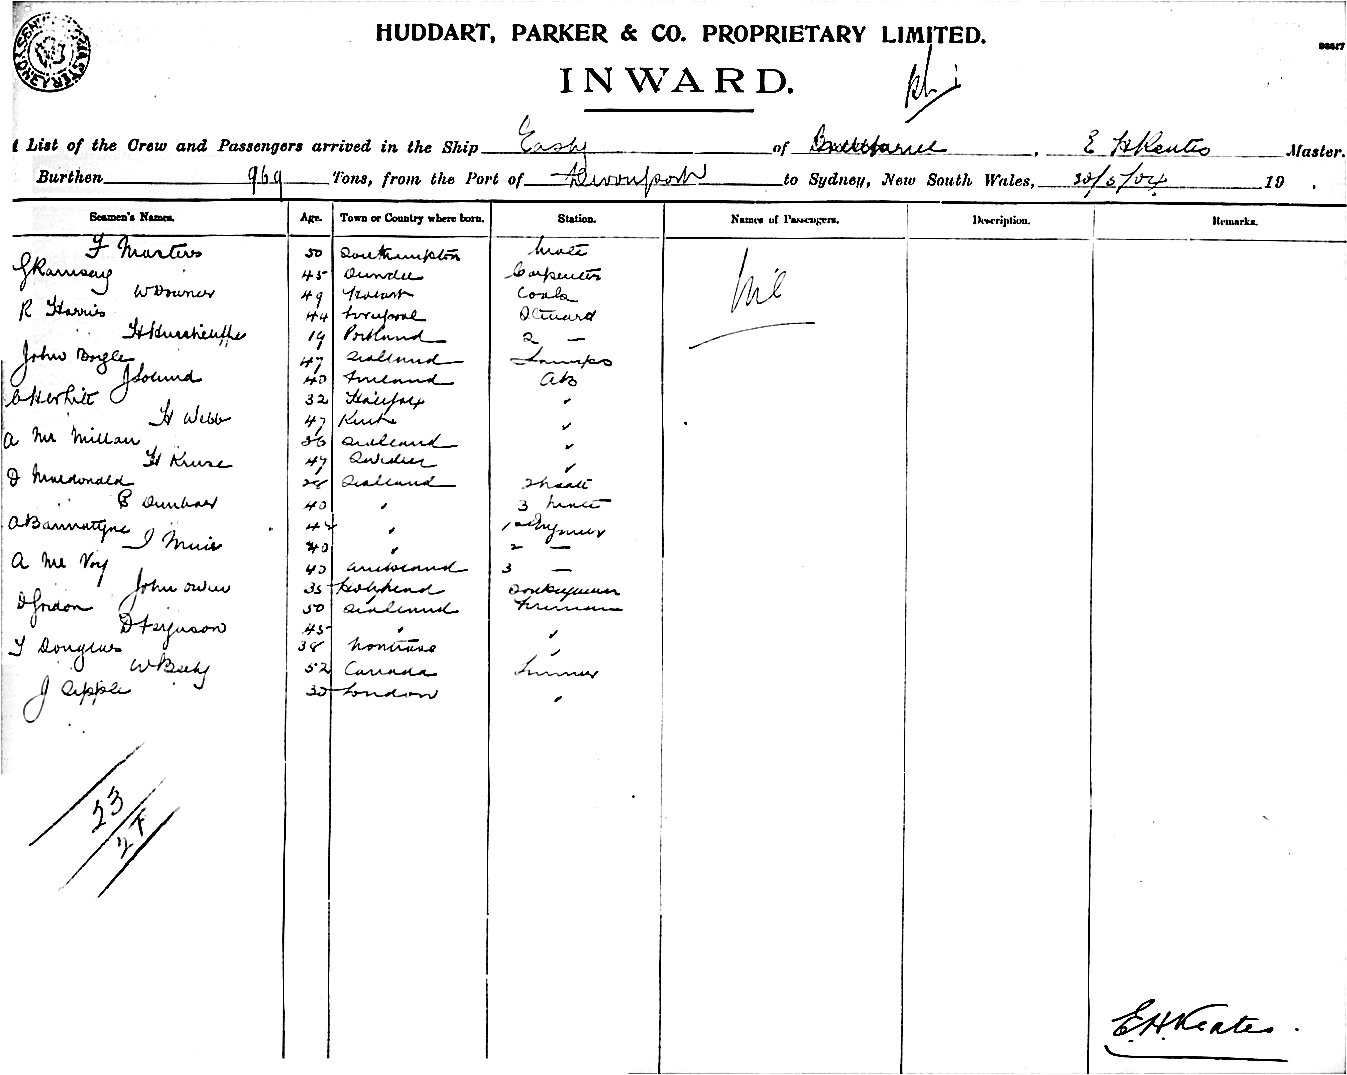 HUDDART, PARKER & CO. PROPRIETARY LIMITED.
INWARD.
List of the Crew and Passengers arrived in the Ship Easby of , E H Keates Master.
Burthen 969 Tons, from the Port of Devonport to Sydney, New South Wales, 30/5/04 19 .
Seamen's Names. Age. Town or Country where born. Station. Names of Passengers. Description. Remarks.
F Masters 50 Southampton Mate nil
G Ramsay 45 Dundee Carpenter
W Downer 49 Hobart Cook
R Harris 44 Liverpool Steward
19 Portland 2 —
John Bogle 47 Scotland Lamps
J Solund 40 Finland AB
32 Halifax "
H Webb 47 Kent "
A Mc Millan 36 Scotland "
H Kruse 47 Sweden "
D Macdonald 28 Scotland 2 Mate
E Dunbar 40 " 3 Mate
A Bannatyne 44 " 1st Engineer
J Muir 40 " 2 —
A Mc Voy 40 3 —
John Owen 35 Holyhead Donkeyman
D Gordon 50 Scotland Fireman
D Ferguson 45 " "
T Douglas 38 Montrose "
W Beeby 52 Canada Trimmer
J Apple 30 London "
23
24
E.H. Keates.